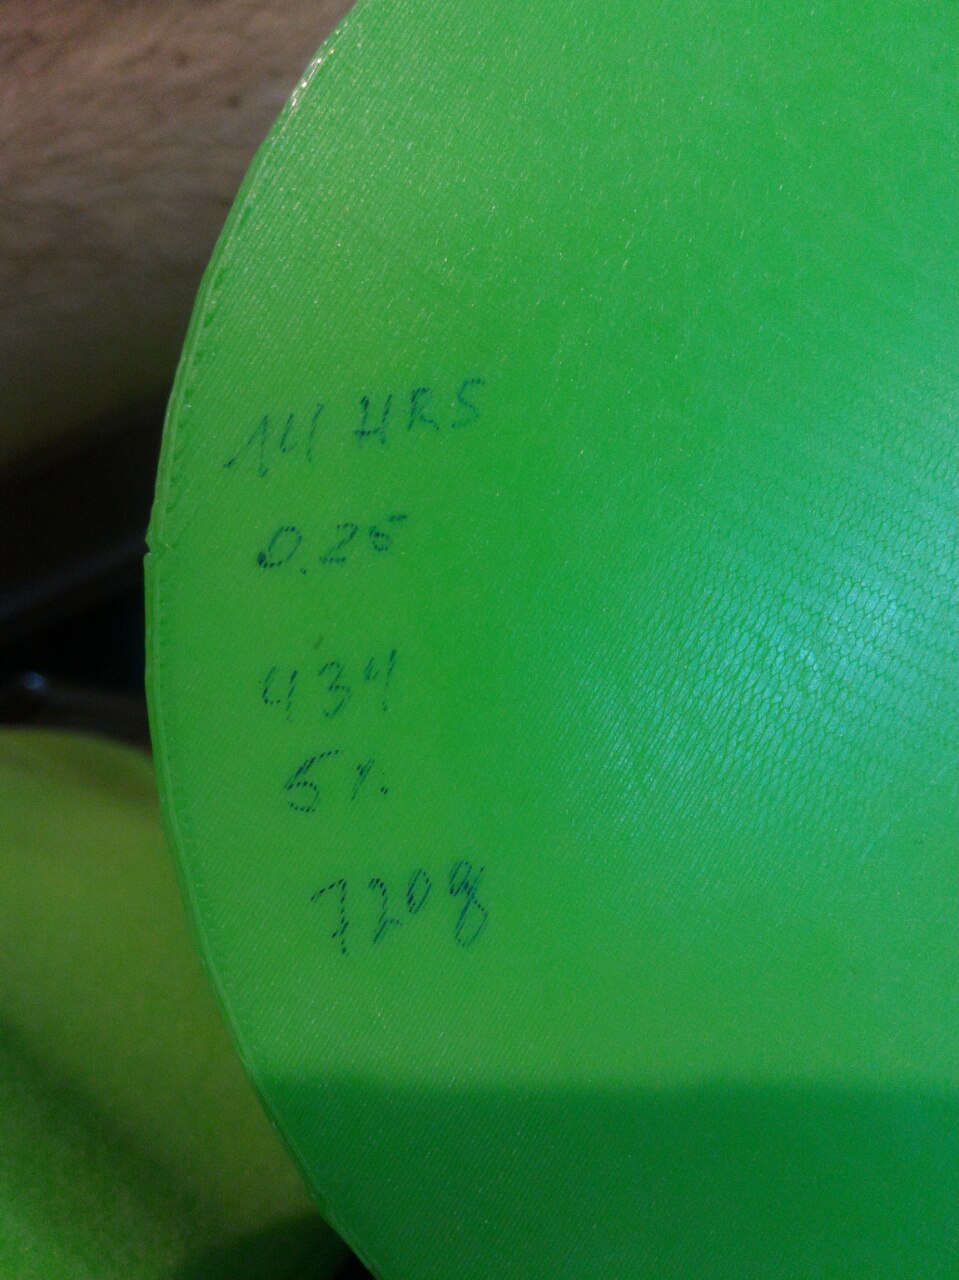 14 HRS
0.25
434
5%
720g